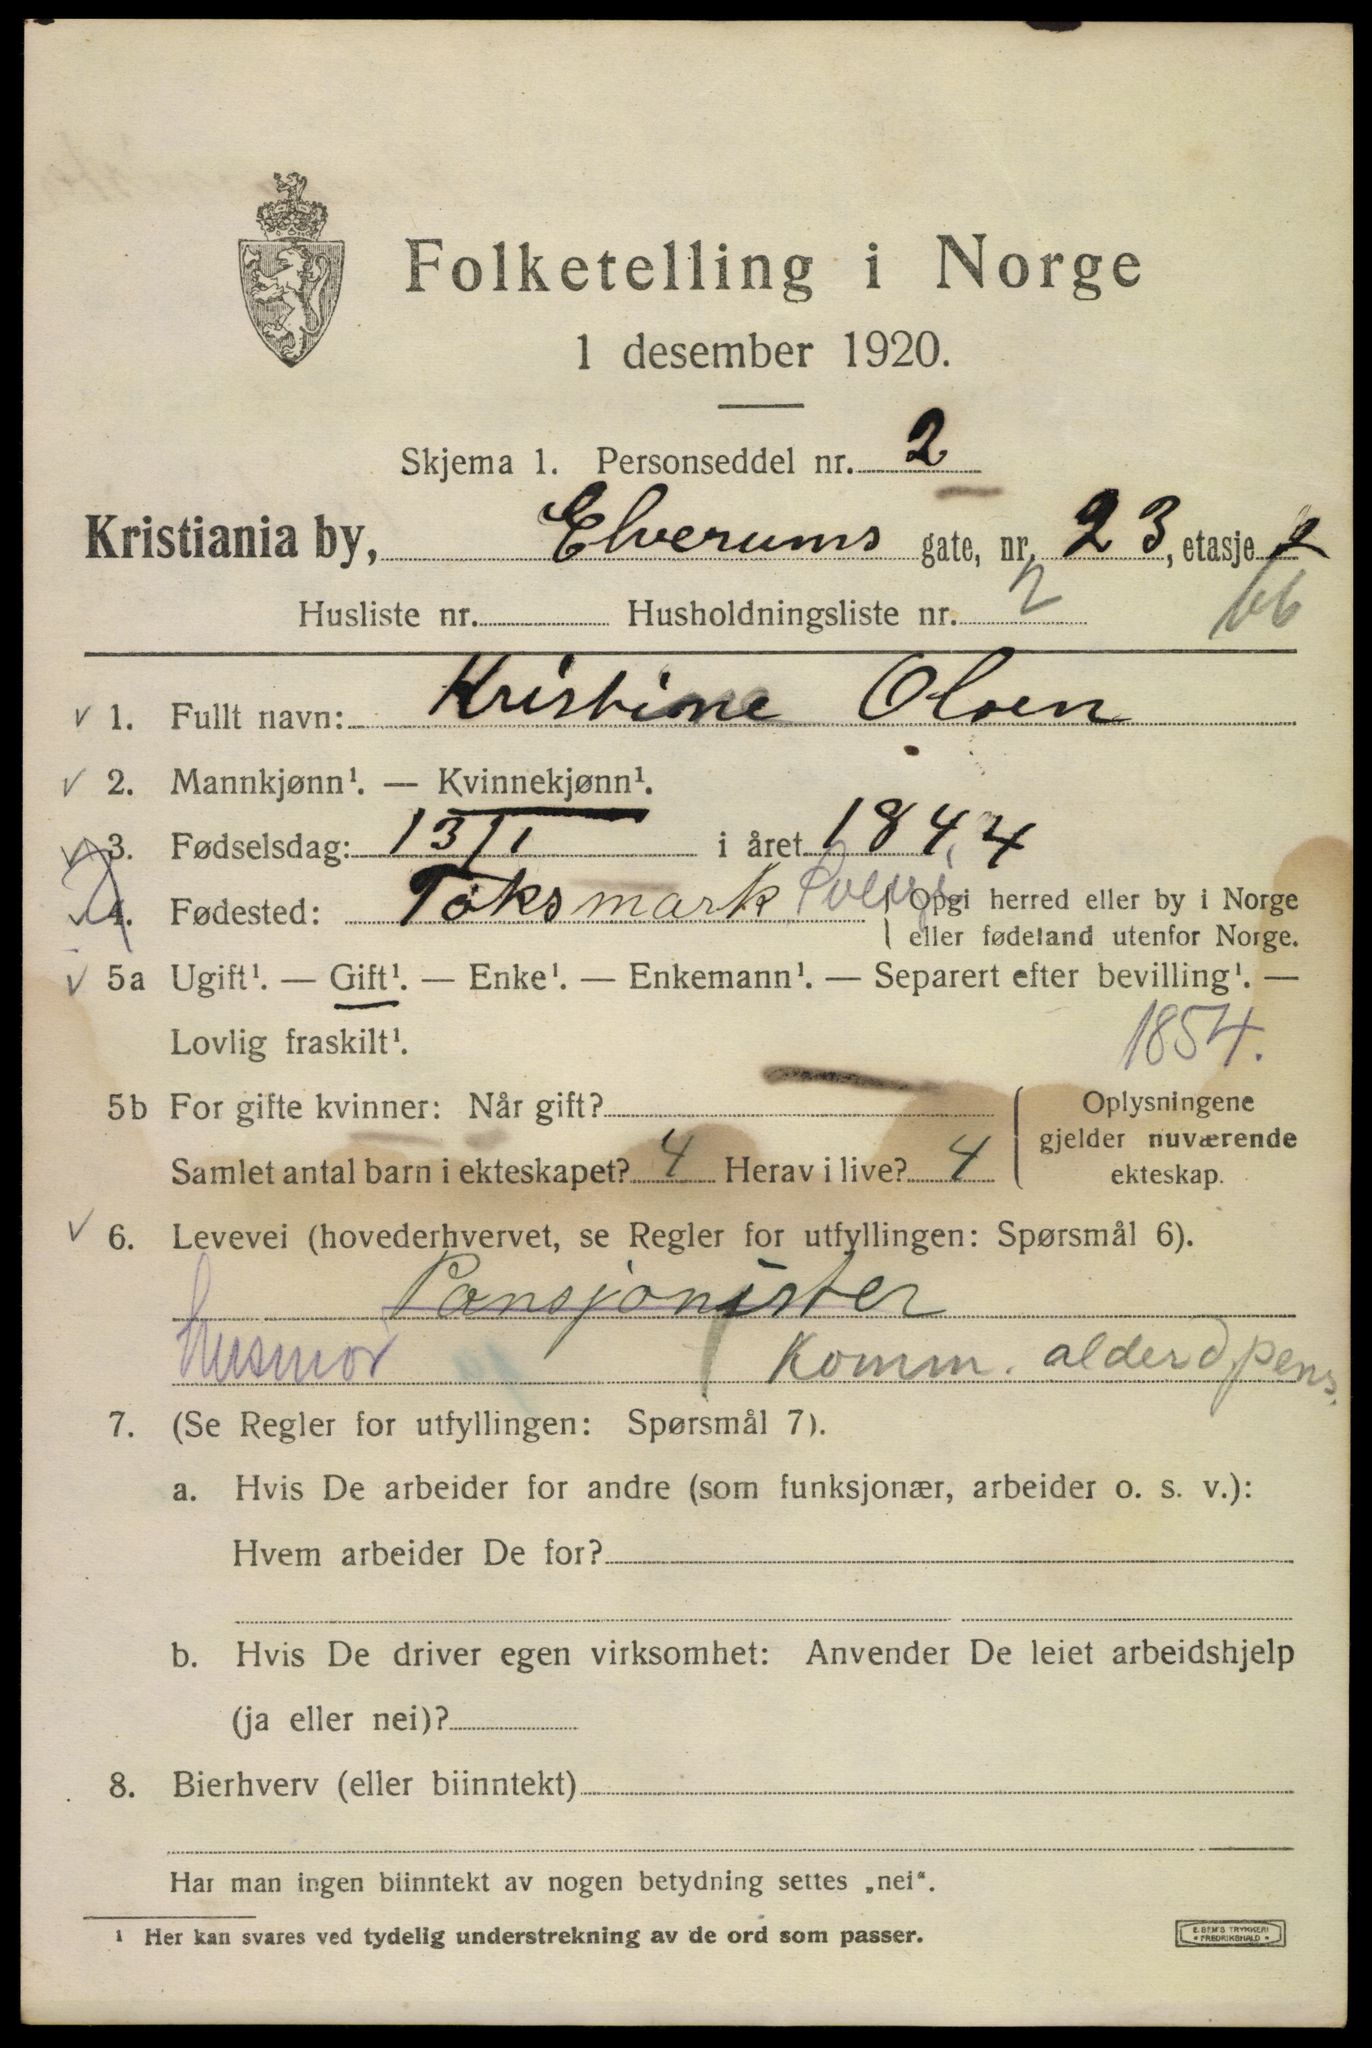 Folketelling i Norge
1 desember 1920.
Skjema 1. Personseddel nr. 2
Kristiania by, Elverums gate, nr. 23, etasje 2
Husliste nr. Husholdningsliste nr. 2 66
1. Fullt navn: Kristine Olsen
2. Mannkjønn¹. — Kvinnekjønn¹.
3. Fødselsdag: 13/1 i året 1844
4. Fødested: Töksmark Opgi herred eller by i Norge
eller fødeland utenfor Norge.
5a Ugift¹. — Gift¹. — Enke¹. — Enkemann¹. — Separert efter bevilling¹. —
Lovlig fraskilt¹. 1854.
5b For gifte kvinner: Når gift? Oplysningene
gjelder nuværende
Samlet antal barn i ekteskapet? 4 Herav i live? 4 ekteskap.
6. Levevei (hovederhvervet, se Regler for utfyllingen: Spørsmål 6).
Pansjonister
husmor Komm. alderd pens.
7. (Se Regler for utfyllingen: Spørsmål 7).
a. Hvis De arbeider for andre (som funksjonær, arbeider o. s. v.):
Hvem arbeider De for?
b. Hvis De driver egen virksomhet: Anvender De leiet arbeidshjelp
(ja eller nei)?
8. Bierhverv (eller biinntekt)
Har man ingen biinntekt av nogen betydning settes „nei“.
¹ Her kan svares ved tydelig understrekning av de ord som passer.
E. SEM'S TRYKKERI
• FREDRIKSHALD •